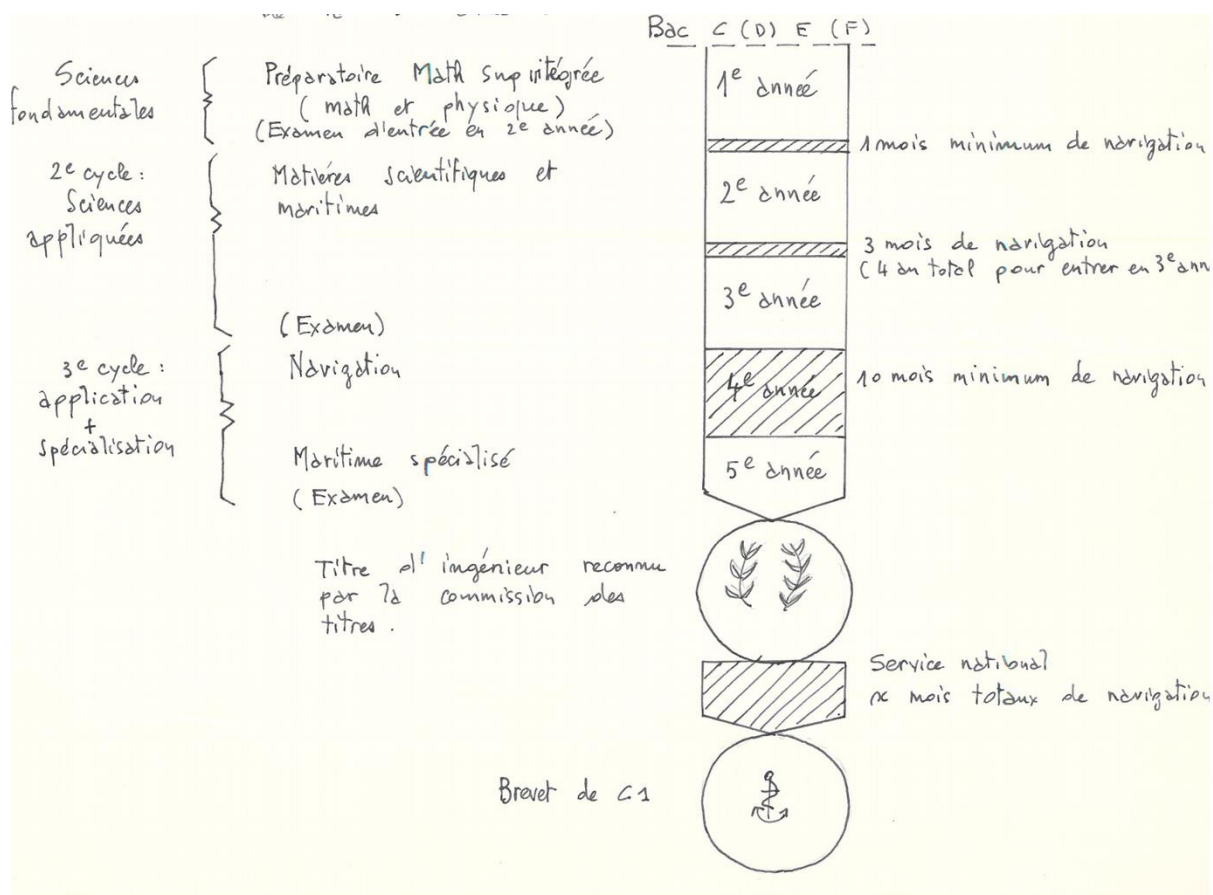 Bac C (D) E (F)
Sciences
fondamentales
Préparatoire Math Sup intégrée
(math et physique)
(Examen d'entrée en 2e année)
1e année
1 mois minimum de navigation
2e cycle :
Sciences
appliquées
Matières scientifiques et
maritimes
2e année
3 mois de navigation
(4 au total pour entrer en 3e ann
3e année
(Examen)
3e cycle :
application
+
spécialisation
Navigation
4e année
10 mois minimum de navigation
Maritime spécialisé
(Examen)
5e année
Titre d'ingénieur reconnu
par la commission des
titres.
Service national
x mois totaux de navigation
Brevet de C1